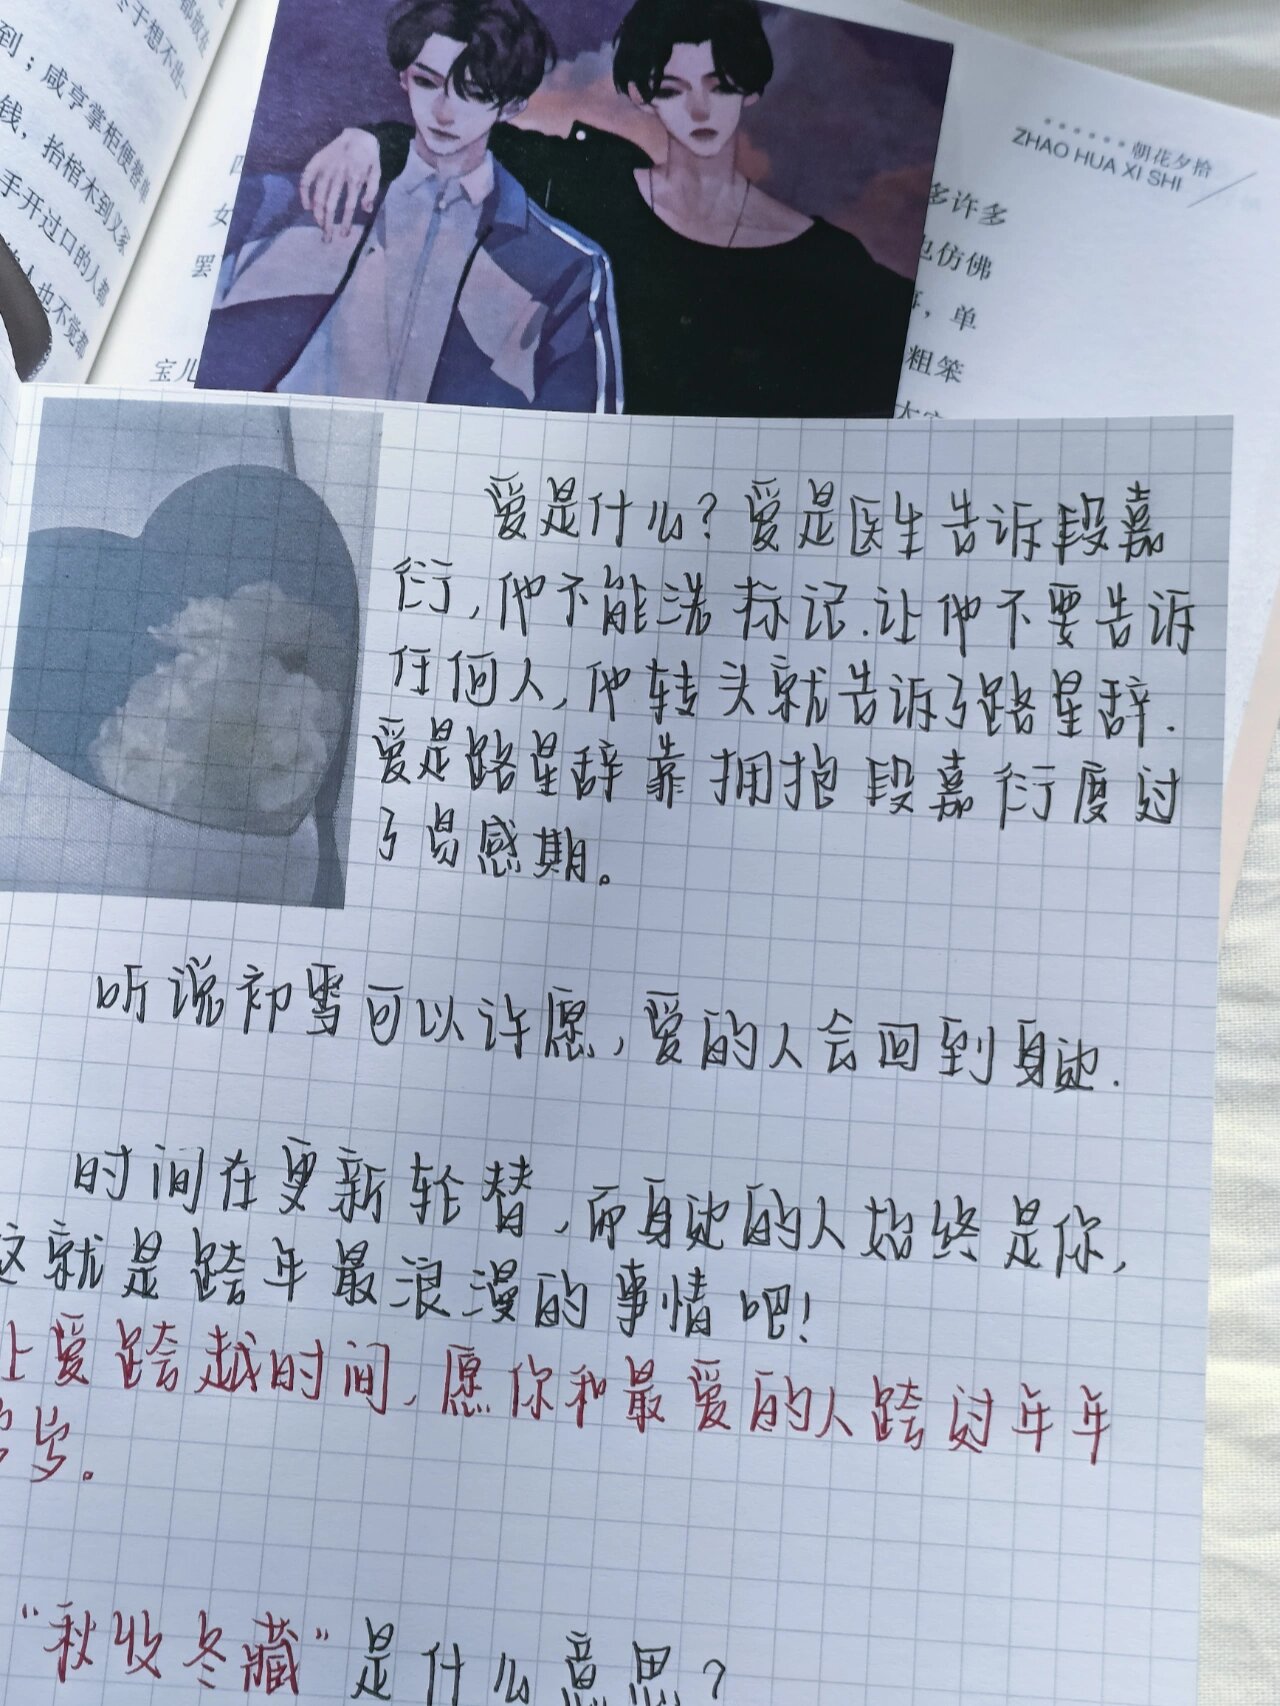 到；咸亨掌柜便替单
钱，抬棺木到义冢
手开过口的人都
人也不觉都
罢
宝儿
朝花夕拾
ZHAO HUA XI SHI
多许多
也仿佛
，单
粗笨
爱是什么？爱是医生告诉段嘉
衍，他不能洗标记.让他不要告诉
任何人，他转头就告诉了路星辞.
爱是路星辞靠拥抱段嘉衍度过
了易感期。
听说初雪可以许愿，爱的人会回到身边.
时间在更新轮替，而身边的人始终是你，
这就是跨年最浪漫的事情吧！
让爱跨越时间，愿你和最爱的人跨过年年
岁岁。
“秋收冬藏”是什么意思？